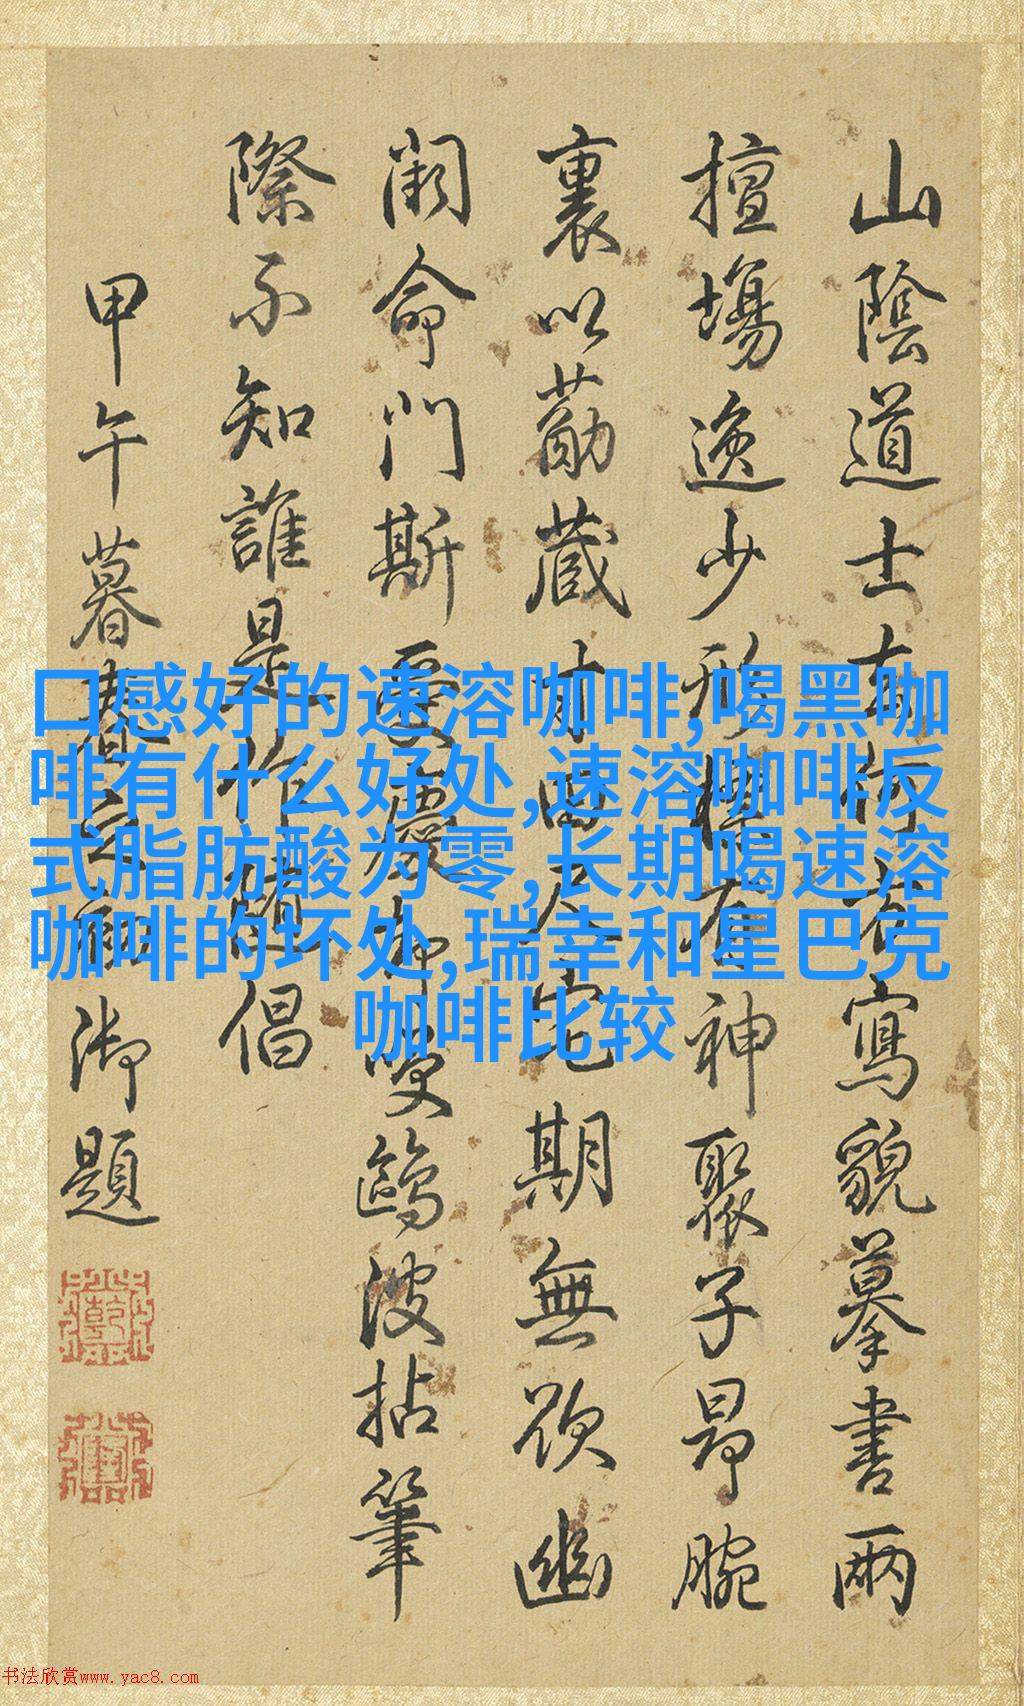 山陰道士寫貌摹書兩
擅場逸少形神聚子昂腕
裏以勛藏才尺宅期無欲幽
命門斯要鷗波拈筆
際不知誰是作倡
甲午暮春御題
口感好的速溶咖啡,喝黑咖
啡有什么好处,速溶咖啡反
式脂肪酸为零,长期喝速溶
咖啡的坏处,瑞幸和星巴克
咖啡比较
书法欣赏www.yac8.com